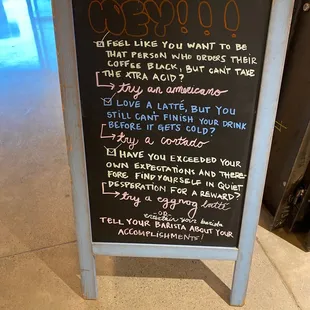 HEY!!!
FEEL LIKE YOU WANT TO BE
THAT PERSON WHO ORDERS THEIR
COFFEE BLACK, BUT CAN'T TAKE
THE XTRA ACID?
try an americano
LOVE A LATTÉ, BUT YOU
STILL CANT FINISH YOUR DRINK
BEFORE IT GETS COLD?
try a cortado
HAVE YOU EXCEEDED YOUR
OWN EXPECTATIONS AND THERE-
FORE FIND YOURSELF IN QUIET
DESPERATION FOR A REWARD?
try a eggnog latté
OR
entertain your barista
TELL YOUR BARISTA ABOUT YOUR
ACCOMPLISHMENTS!